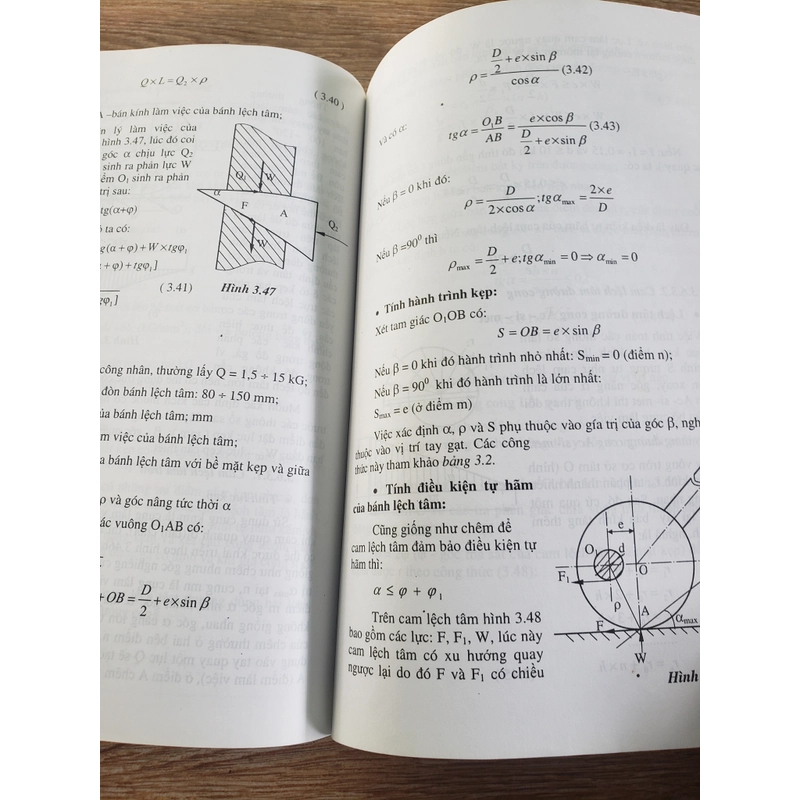 Q×L=Q₂×ρ
(3.40)
–bán kính làm việc của bánh lệch tâm;
lý làm việc của
hình 3.47, lúc đó coi
góc α chịu lực Q₂
sinh ra phản lực W
O₁ sinh ra phản
trị sau:
tg(α+φ)
ta có:
(α+φ)+W×tgφ₁
+φ)+tgφ₁]
(3.41)
Q₁
W
α
F
A
Q₂
W
Hình 3.47
công nhân, thường lấy Q = 1,5 ÷ 15 kG;
đòn bánh lệch tâm: 80 ÷ 150 mm;
bánh lệch tâm; mm
việc của bánh lệch tâm;
bánh lệch tâm với bề mặt kẹp và giữa
ρ và góc nâng tức thời α
vuông O₁AB có:
+OB=D/2+e×sin β
ρ=(D/2+e×sin β)/cosα (3.42)
Và có α:
tgα=O₁B/AB=(e×cosβ)/(D/2+e×sin β) (3.43)
Nếu β = 0 khi đó:
ρ=D/(2×cosα);tgα_max=(2×e)/D
Nếu β =90⁰ thì
ρ_max=D/2+e;tgα_min=0⇒α_min=0
• Tính hành trình kẹp:
Xét tam giác O₁OB có:
S=OB=e×sin β
Nếu β = 0 khi đó hành trình nhỏ nhất: S_min = 0 (điểm n);
Nếu β = 90⁰ khi đó hành trình là lớn nhất:
S_max = e (ở điểm m)
Việc xác định α, ρ và S phụ thuộc vào gía trị của góc β, ngh
thuộc vào vị trí tay gạt. Các công
thức này tham khảo bảng 3.2.
• Tính điều kiện tự hãm
của bánh lệch tâm:
Cũng giống như chêm để
cam lệch tâm đảm bảo điều kiện tự
hãm thì:
α ≤ φ + φ₁
Trên cam lệch tâm hình 3.48
bao gồm các lực: F, F₁, W, lúc này
cam lệch tâm có xu hướng quay
ngược lại do đó F và F₁ có chiều
e
O₁
d
O
F₁
ρ
A
α_max
F
W
Hình